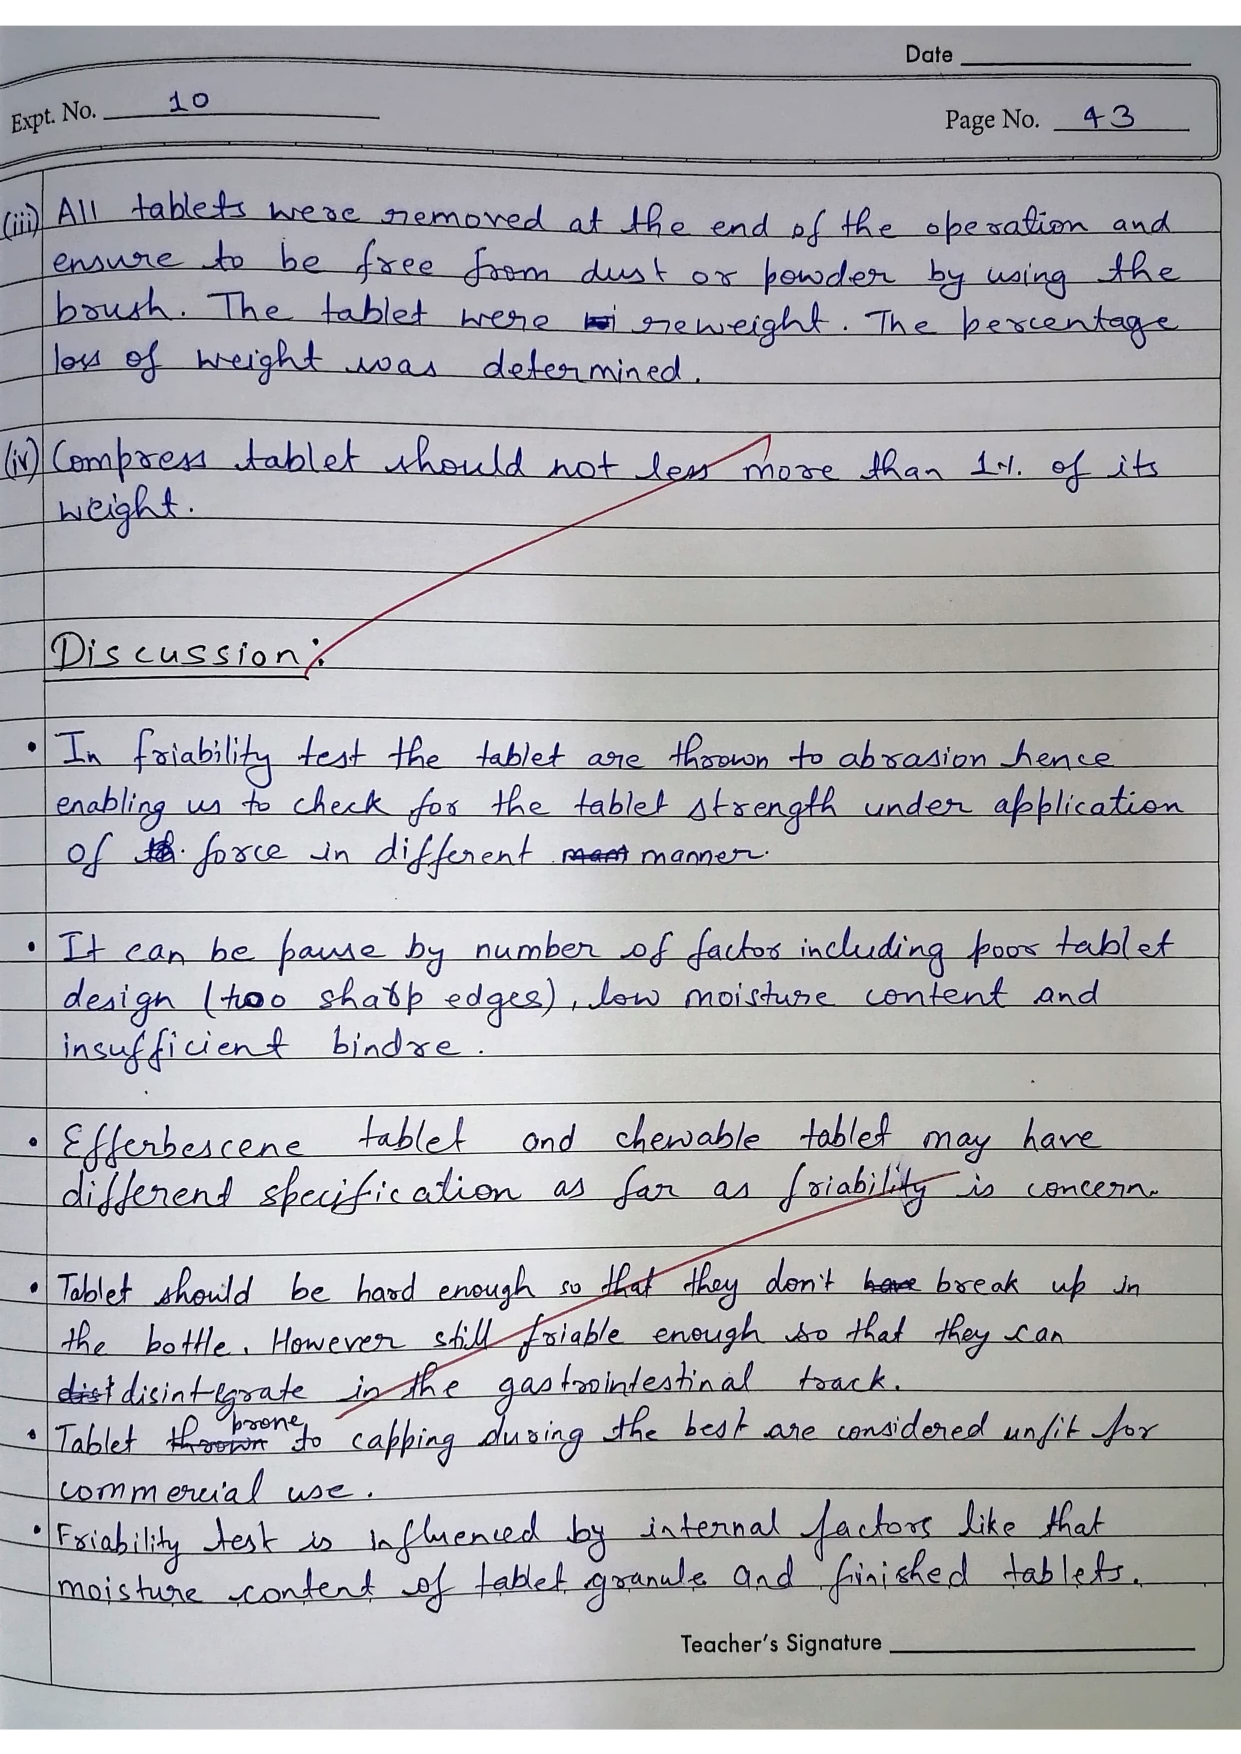 Date
Expt. No. 10
Page No. 43
(iii) All tablets were removed at the end of the operation and
ensure to be free from dust or powder by using the
brush. The tablet were reweight. The percentage
loss of weight was determined.
(iv) Compress tablet should not less more than 1%. of its
weight.
Discussion:
• In friability test the tablet are thrown to abrasion hence
enabling us to check for the tablet strength under application
of force in different manner.
• It can be pause by number of factor including poor tablet
design (too sharp edges), low moisture content and
insufficient bindre.
• Efferbescene tablet and chewable tablet may have
different specification as far as friability is concern.
• Tablet should be hard enough so that they don't have break up in
the bottle. However still friable enough so that they can
dist disintegrate in the gastrointestinal track.
• Tablet thrown prone to capping during the best are considered unfit for
commercial use.
• Friability test is influenced by internal factors like that
moisture content of tablet granule and finished tablets.
Teacher's Signature